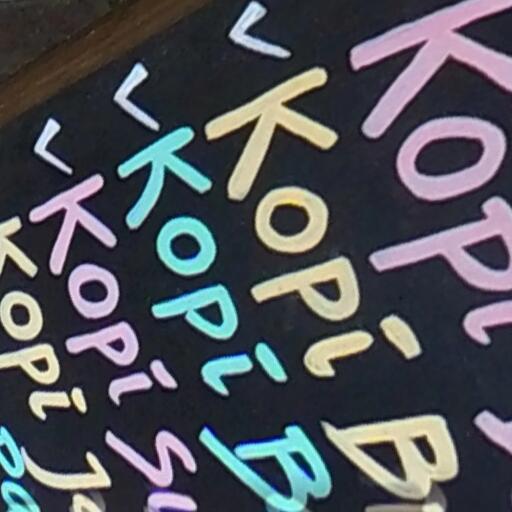 Kopi
✓ Kopi B
✓ Kopi B
✓ Kopi Su
Kopi Ja